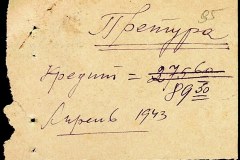 95
Претура
Кредит = 27560
8930
Апрель 1943